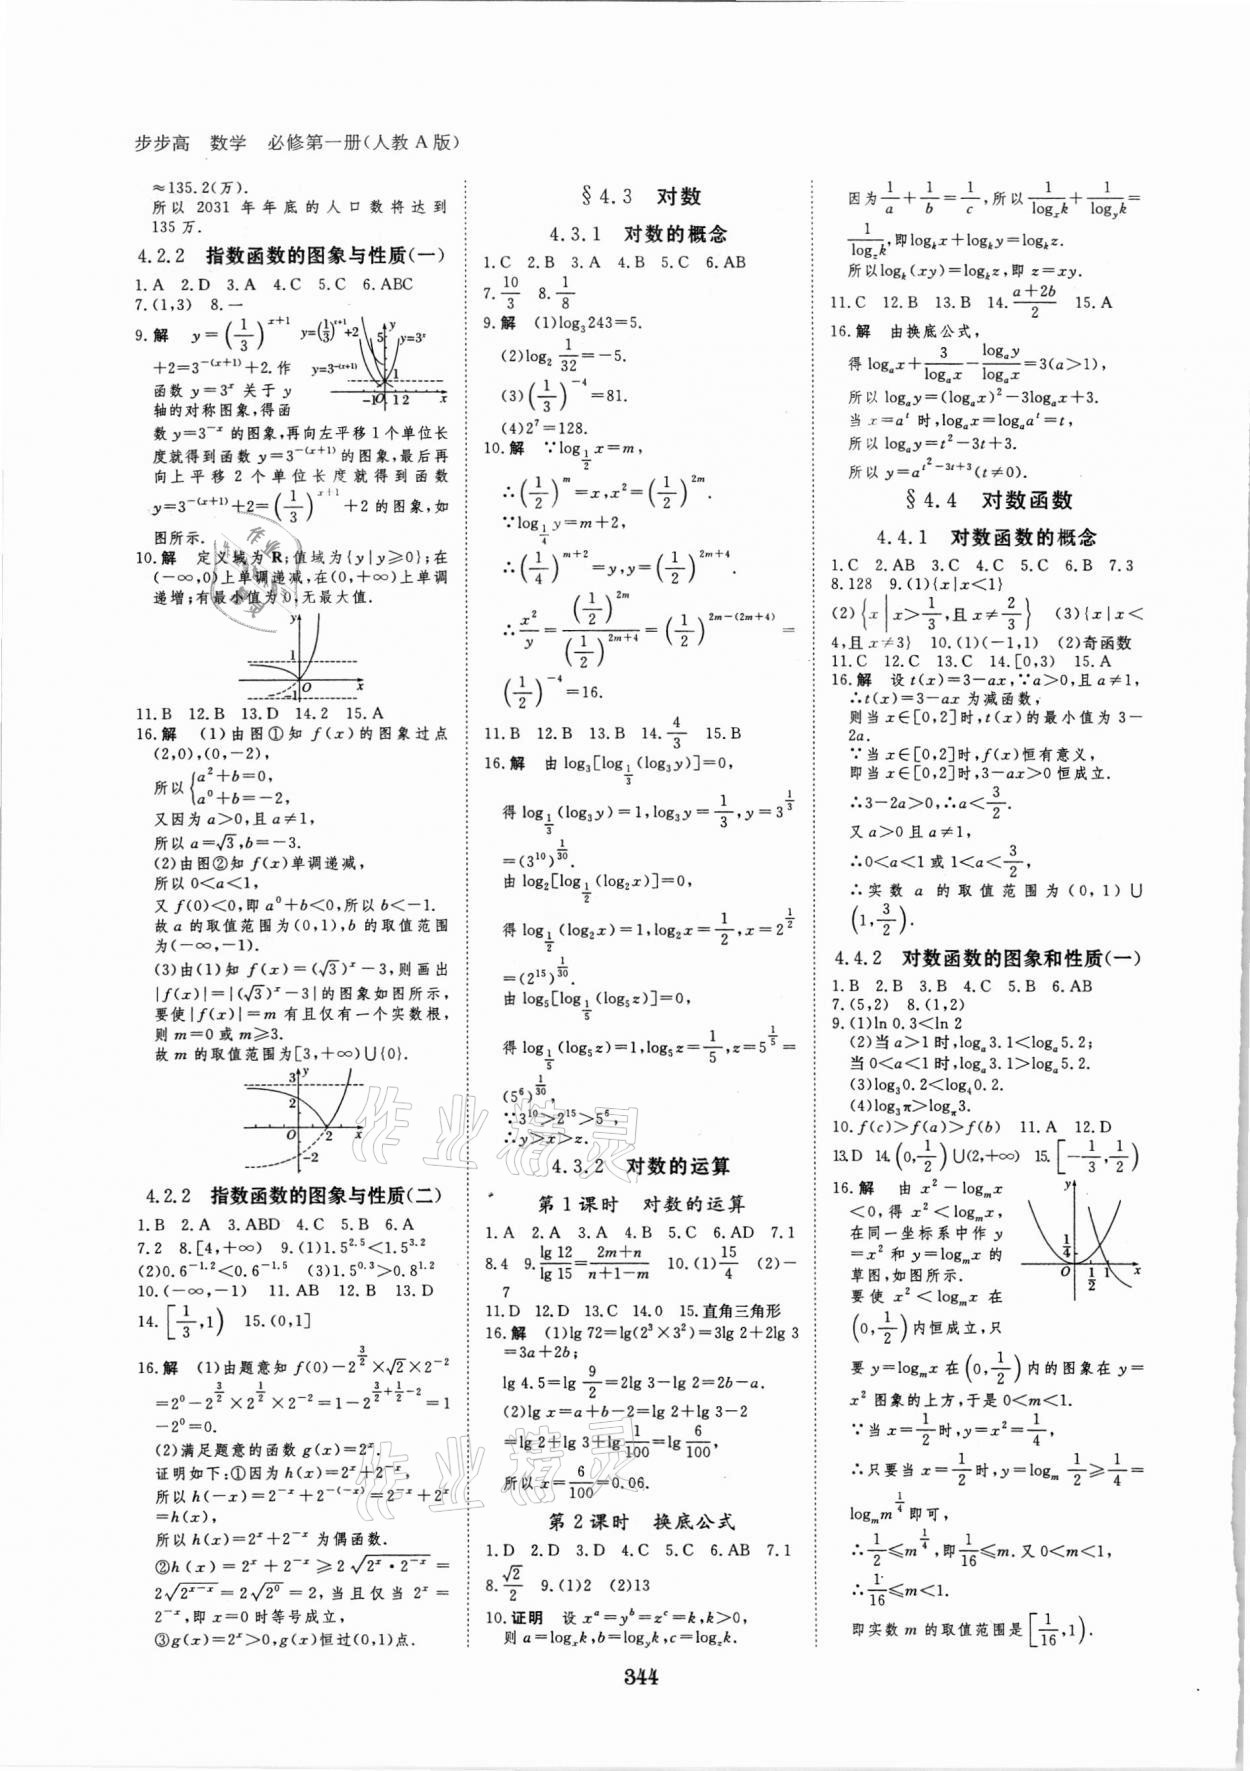 步步高 数学 必修第一册(人教 A 版)
≈135.2(万).
所以 2031 年年底的人口数将达到
135 万.
4.2.2 指数函数的图象与性质(一)
1.A 2.D 3.A 4.C 5.C 6.ABC
7.(1,3) 8.一
9.解 y=(1/3)^{x+1}
+2=3^{-(x+1)}+2.作
函数 y=3^x 关于 y
轴的对称图象,得函
y=(1/3)^{x+1}+2
y=3^x
y=3^{-(x+1)}
5
1
-1 O 1 2 x
y
数 y=3^{-x} 的图象,再向左平移 1 个单位长
度就得到函数 y=3^{-(x+1)} 的图象,最后再
向上平移 2 个单位长度就得到函数
y=3^{-(x+1)}+2=(1/3)^{x+1}+2 的图象,如
图所示.
10.解 定义域为 R;值域为{y|y≥0};在
(-∞,0)上单调递减,在(0,+∞)上单调
递增;有最小值为 0,无最大值.
y
1
O x
-1
11.B 12.B 13.D 14.2 15.A
16.解 (1)由图①知 f(x)的图象过点
(2,0),(0,-2),
所以 {a^2+b=0,
a^0+b=-2,
又因为 a>0,且 a≠1,
所以 a=√3,b=-3.
(2)由图②知 f(x)单调递减,
所以 0<a<1,
又 f(0)<0,即 a^0+b<0,所以 b<-1.
故 a 的取值范围为(0,1),b 的取值范围
为(-∞,-1).
(3)由(1)知 f(x)=(√3)^x-3,则画出
|f(x)|=|(√3)^x-3|的图象如图所示,
要使|f(x)|=m 有且仅有一个实数根,
则 m=0 或 m≥3.
故 m 的取值范围为[3,+∞)∪{0}.
3 y
2
O 2 x
-2
4.2.2 指数函数的图象与性质(二)
1.B 2.A 3.ABD 4.C 5.B 6.A
7.2 8.[4,+∞) 9.(1)1.5^{2.5}<1.5^{3.2}
(2)0.6^{-1.2}<0.6^{-1.5} (3)1.5^{0.3}>0.8^{1.2}
10.(-∞,-1) 11.AB 12.B 13.D
14.[1/3,1) 15.(0,1]
16.解 (1)由题意知 f(0)-2^{3/2}×√2×2^{-2}
=2^0-2^{3/2}×2^{1/2}×2^{-2}=1-2^{3/2+1/2-2}=1
-2^0=0.
(2)满足题意的函数 g(x)=2^x.
证明如下:①因为 h(x)=2^x+2^{-x},
所以 h(-x)=2^{-x}+2^{-(-x)}=2^{-x}+2^x
=h(x),
所以 h(x)=2^x+2^{-x} 为偶函数.
②h(x)=2^x+2^{-x}≥2√(2^x·2^{-x})=
2√(2^{x-x})=2√(2^0)=2,当且仅当 2^x=
2^{-x},即 x=0 时等号成立,
③g(x)=2^x>0,g(x)恒过(0,1)点.
§4.3 对数
4.3.1 对数的概念
1.C 2.B 3.A 4.B 5.C 6.AB
7.10/3 8.1/8
9.解 (1)log_3 243=5.
(2)log_2 1/32=-5.
(3)(1/3)^{-4}=81.
(4)2^7=128.
10.解 ∵log_{1/2}x=m,
∴(1/2)^m=x,x^2=(1/2)^{2m}.
∵log_{1/4}y=m+2,
∴(1/4)^{m+2}=y,y=(1/2)^{2m+4}.
∴x^2/y=(1/2)^{2m}/(1/2)^{2m+4}=(1/2)^{2m-(2m+4)}=
(1/2)^{-4}=16.
11.B 12.B 13.B 14.4/3 15.B
16.解 由 log_3[log_{1/3}(log_3y)]=0,
得 log_{1/3}(log_3y)=1,log_3y=1/3,y=3^{1/3}
=(3^{10})^{1/30}.
由 log_2[log_{1/2}(log_2x)]=0,
得 log_{1/2}(log_2x)=1,log_2x=1/2,x=2^{1/2}
=(2^{15})^{1/30}.
由 log_5[log_{1/5}(log_5z)]=0,
得 log_{1/5}(log_5z)=1,log_5z=1/5,z=5^{1/5}=
(5^6)^{1/30},
∵3^{10}>2^{15}>5^6,
∴y>x>z.
4.3.2 对数的运算
第 1 课时 对数的运算
1.A 2.A 3.A 4.B 5.C 6.AD 7.1
8.4 9.lg 12/lg 15=(2m+n)/(n+1-m) 10.(1)15/4 (2)-
7
11.D 12.D 13.C 14.0 15.直角三角形
16.解 (1)lg 72=lg(2^3×3^2)=3lg 2+2lg 3
=3a+2b;
lg 4.5=lg 9/2=2lg 3-lg 2=2b-a.
(2)lg x=a+b-2=lg 2+lg 3-2
=lg 2+lg 3+lg 1/100=lg 6/100,
所以 x=6/100=0.06.
第 2 课时 换底公式
1.D 2.D 3.D 4.C 5.C 6.AB 7.1
8.√2/2 9.(1)2 (2)13
10.证明 设 x^a=y^b=z^c=k,k>0,
则 a=log_xk,b=log_yk,c=log_zk.
因为 1/a+1/b=1/c,所以 1/log_xk+1/log_yk=
1/log_zk,即log_kx+log_ky=log_kz.
所以log_k(xy)=log_kz,即 z=xy.
11.C 12.B 13.B 14.(a+2b)/2 15.A
16.解 由换底公式,
得 log_ax+3/log_ax-log_ay/log_ax=3(a>1),
所以 log_ay=(log_ax)^2-3log_ax+3.
当 x=a^t 时,log_ax=log_aa^t=t,
所以 log_ay=t^2-3t+3.
所以 y=a^{t^2-3t+3}(t≠0).
§4.4 对数函数
4.4.1 对数函数的概念
1.C 2.AB 3.C 4.C 5.C 6.B 7.3
8.128 9.(1){x|x<1}
(2){x|x>1/3,且 x≠2/3} (3){x|x<
4,且 x≠3} 10.(1)(-1,1) (2)奇函数
11.C 12.C 13.C 14.[0,3) 15.A
16.解 设 t(x)=3-ax,∵a>0,且 a≠1,
∴t(x)=3-ax 为减函数,
则当 x∈[0,2]时,t(x)的最小值为 3-
2a.
∵当 x∈[0,2]时,f(x)恒有意义,
即当 x∈[0,2]时,3-ax>0 恒成立.
∴3-2a>0,∴a<3/2.
又 a>0 且 a≠1,
∴0<a<1 或 1<a<3/2,
∴实数 a 的取值范围为(0,1)∪
(1,3/2).
4.4.2 对数函数的图象和性质(一)
1.B 2.B 3.B 4.C 5.B 6.AB
7.(5,2) 8.(1,2)
9.(1)ln 0.3<ln 2
(2)当 a>1 时,log_a3.1<log_a5.2;
当 0<a<1 时,log_a3.1>log_a5.2.
(3)log_30.2<log_40.2.
(4)log_3π>log_π3.
10.f(c)>f(a)>f(b) 11.A 12.D
13.D 14.(0,1/2)∪(2,+∞) 15.[-1/3,1/2)
16.解 由 x^2-log_mx
<0,得 x^2<log_mx,
在同一坐标系中作 y
=x^2 和 y=log_mx 的
草图,如图所示.
要使 x^2<log_mx 在
(0,1/2)内恒成立,只
y
1/4
O 1/2 1 x
要 y=log_mx 在(0,1/2)内的图象在 y=
x^2 图象的上方,于是 0<m<1.
∵当 x=1/2时,y=x^2=1/4,
∴只要当 x=1/2时,y=log_m 1/2≥1/4=
log_mm^{1/4}即可,
∴1/2≤m^{1/4},即1/16≤m.又 0<m<1,
∴1/16≤m<1.
即实数 m 的取值范围是[1/16,1).
344
作业精灵
作业精灵